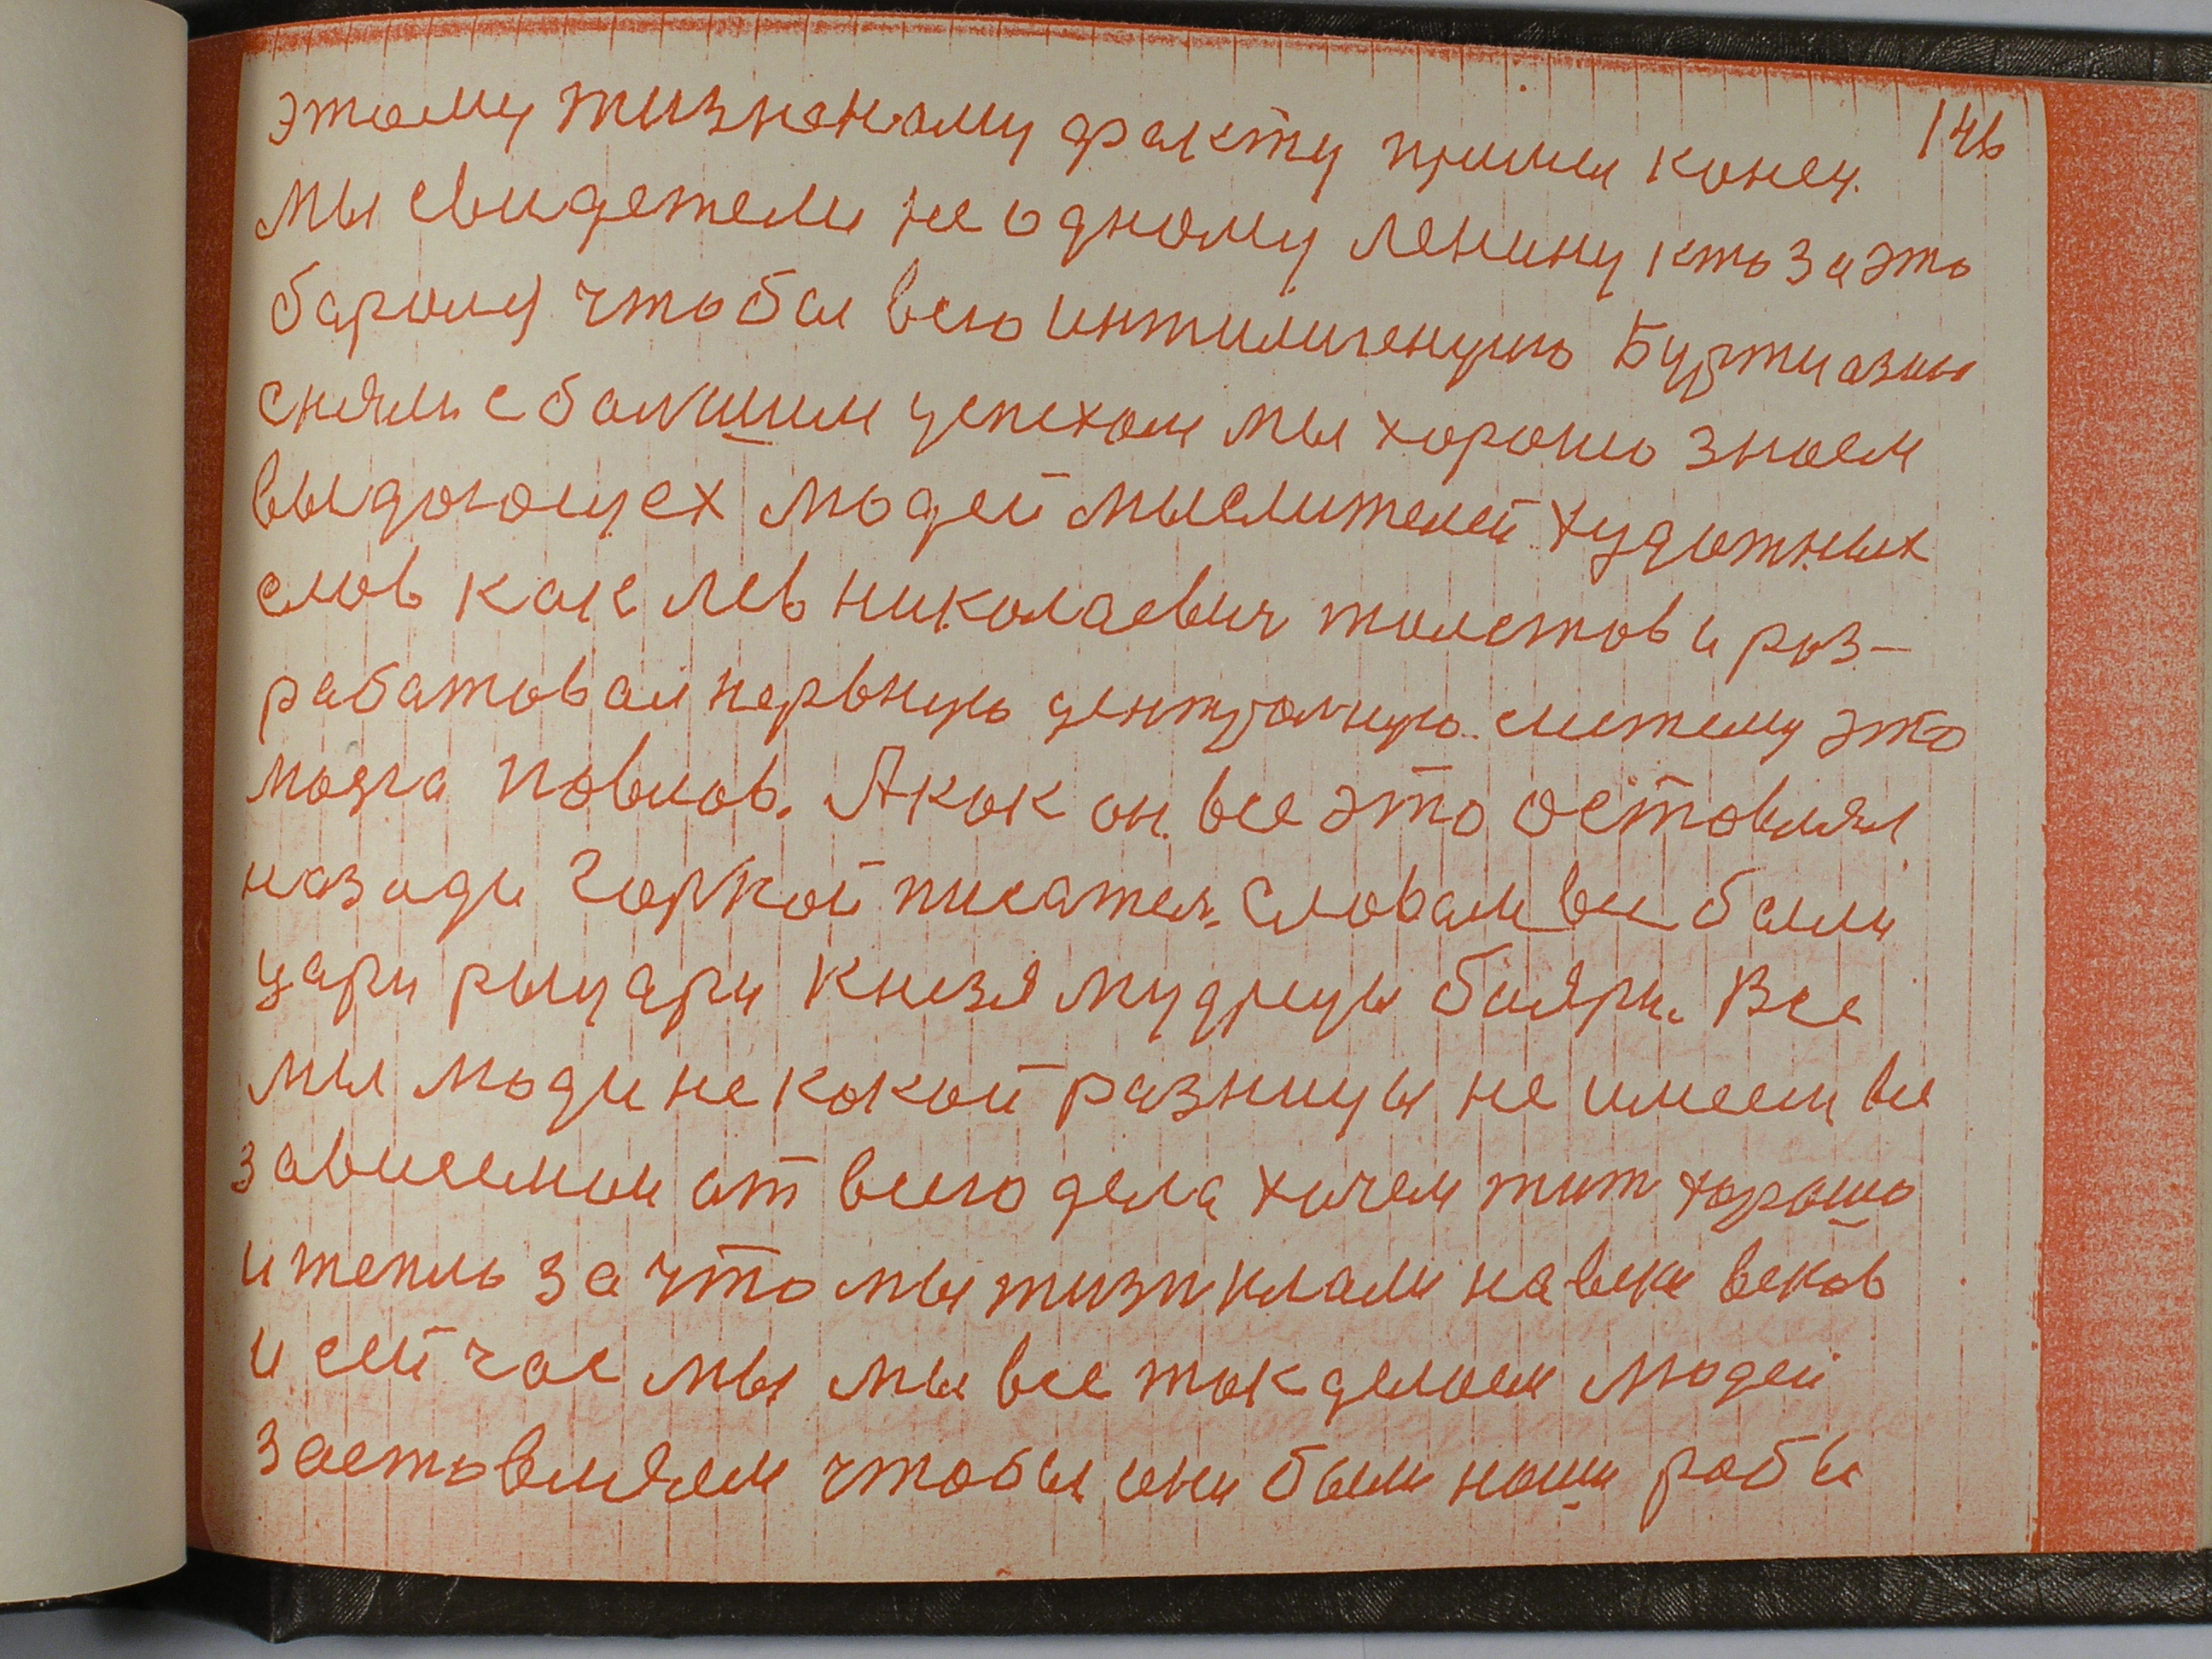 этому жизненому факту пришел конец. 146
мы свидетели не одному ленину кто за это
баролся чтобы всю интилигенцию Буржуазию
сняли с большим успехом мы хорошо знаем
выдающех людей мыслителей художных
слов как лев николаевич толстов и роз-
работовал нервную центральную систему это
мозга Повлов. А как он все это оставлял
назади Горкой писатель. Словам все были
цари рыцари князя мудрецы бояри. Все
мы люди не какой разницы не имеем все
зависемым от всего дела хочем жит хорошо
и тепло за что мы жизн клали на веки веков
и сейчас мы мы все так делаем людей
заставляем чтобы они были наши рабы